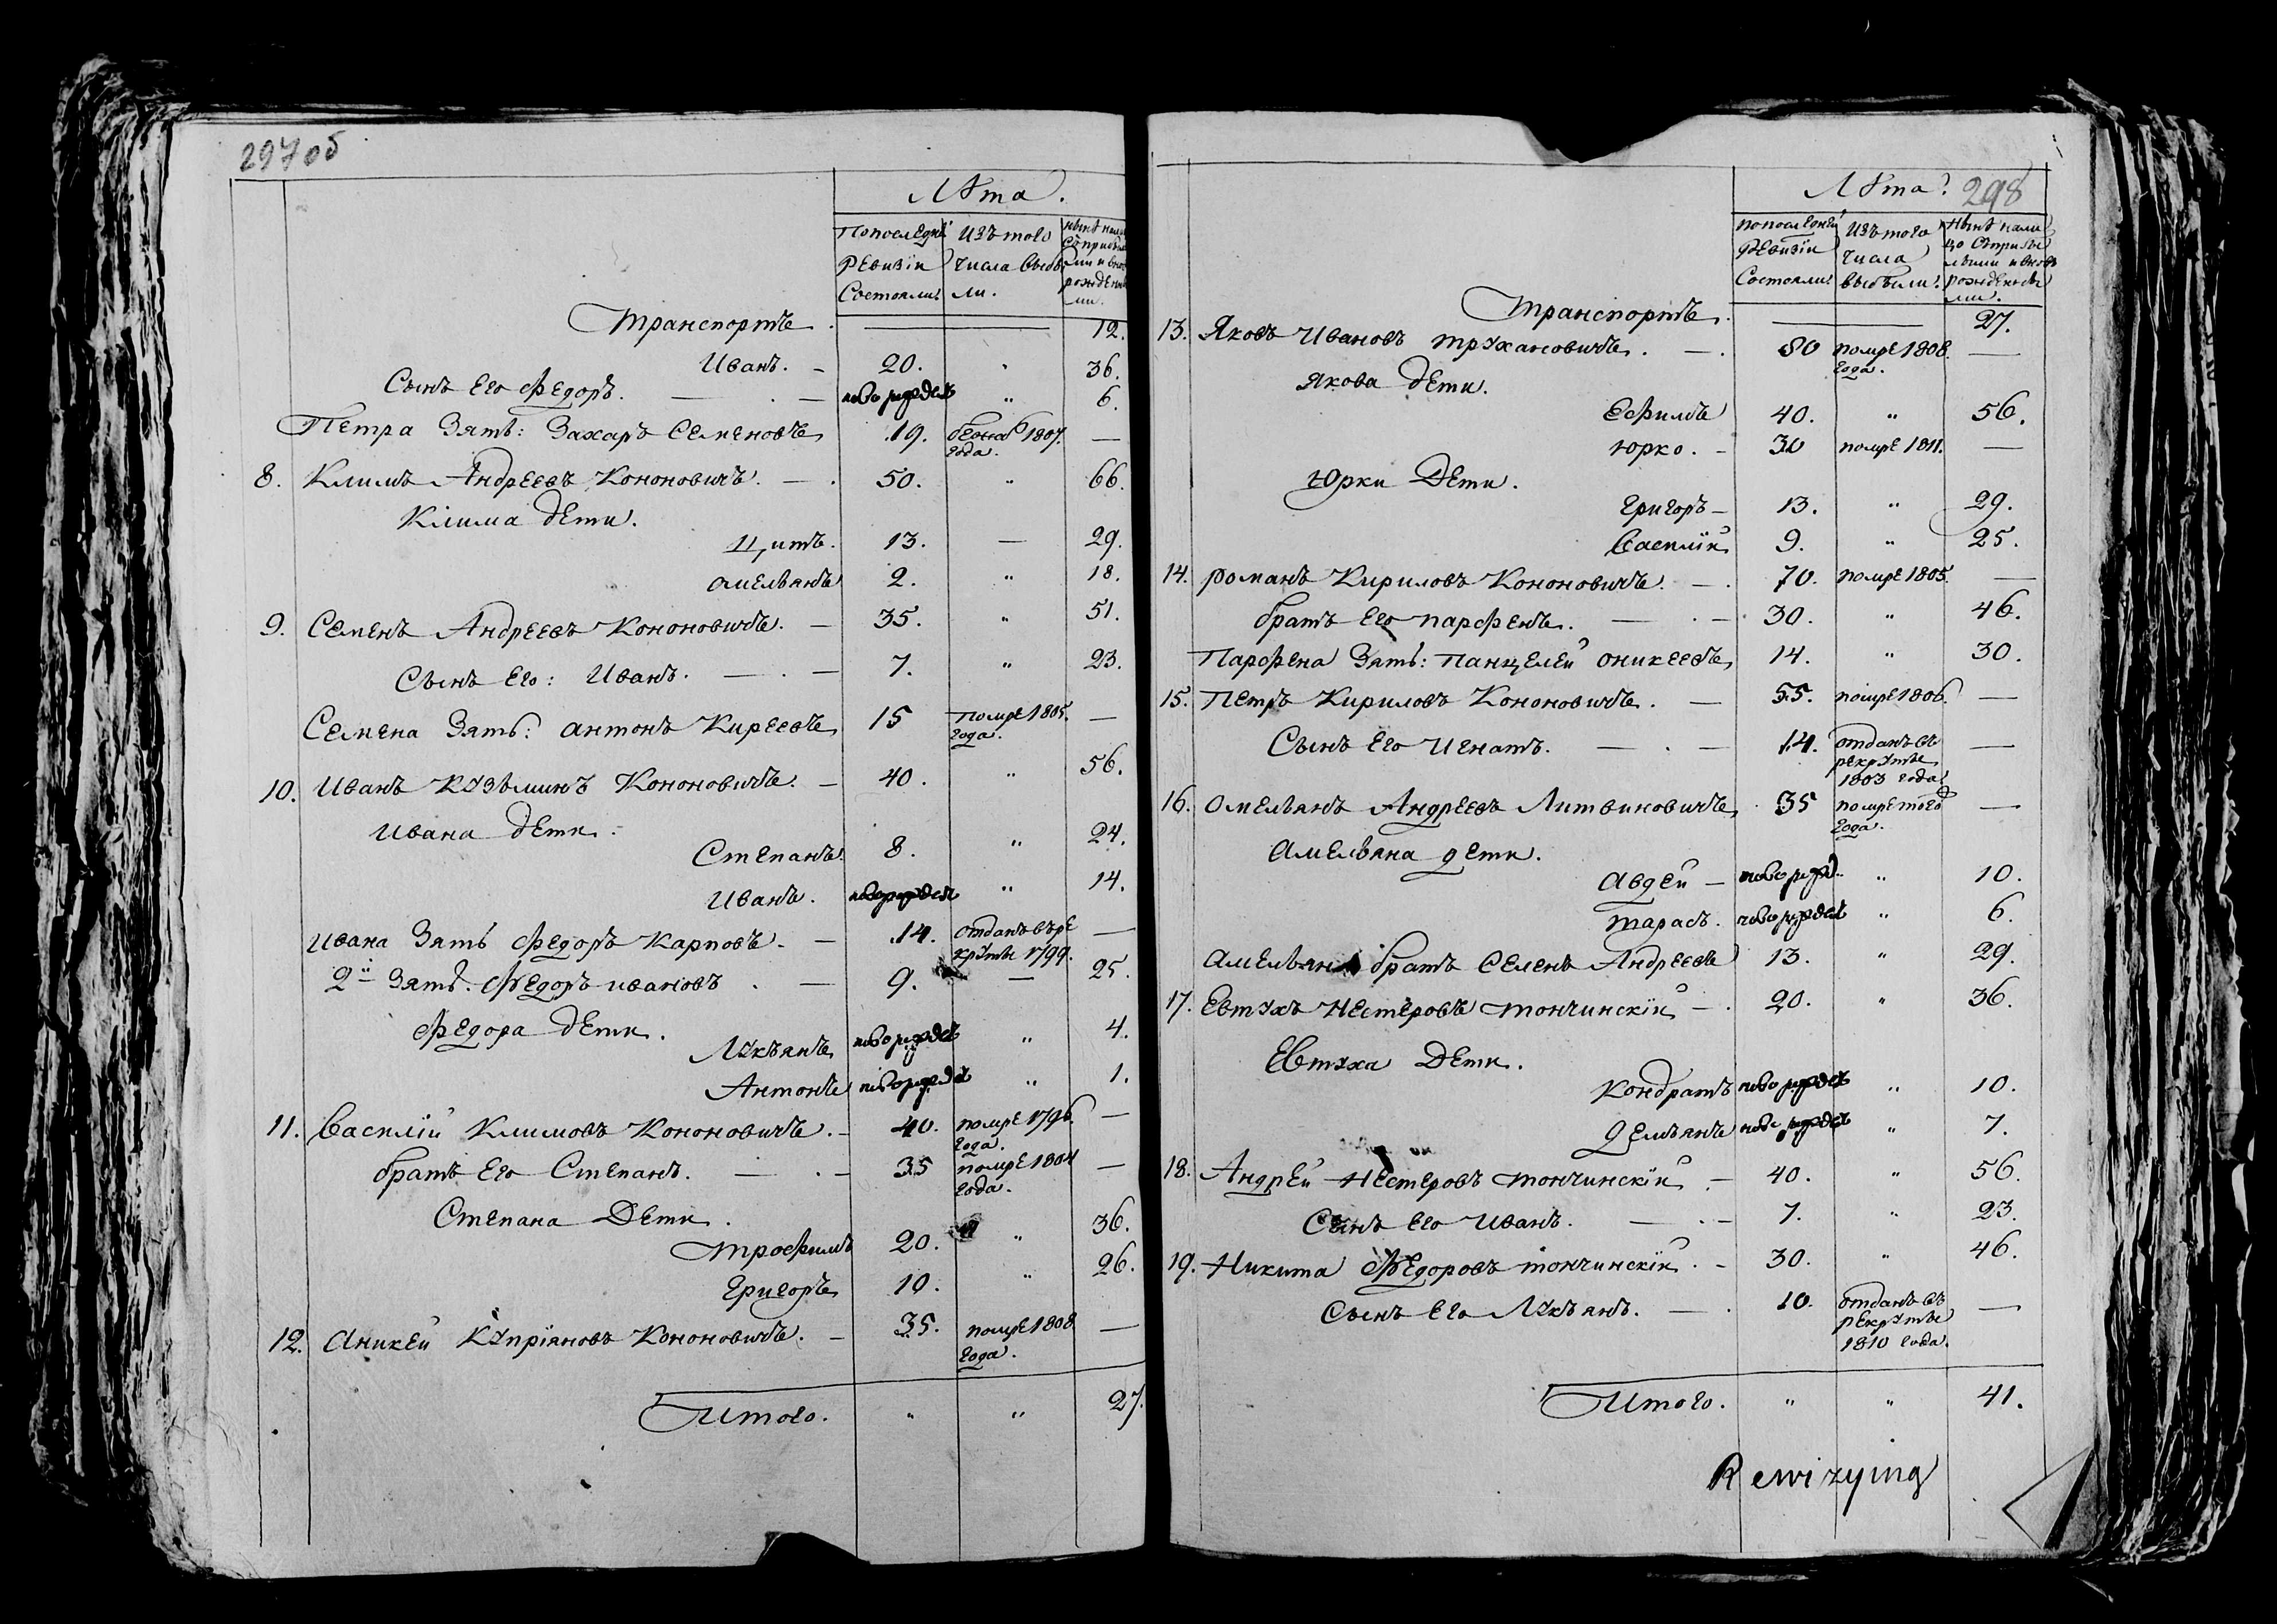 297 об
Лѣта.
По последнѣй ревизіи Состояли
Изъ того числа выбыли.
Транспортъ. 12.
Иванъ. 20. " 36.
Сынъ Его Федоръ. новорожденъ " 6.
Петра Зять: Захаръ Семеновъ 19. бежалъ 1807. года. —
8. Климъ Андреевъ Кононовичъ. 50. " 66.
Клима Дети.
Титъ. 13. — 29.
Амельянъ 2. " 18.
9. Семенъ Андреевъ Кононовичъ. 35. " 51.
Сынъ Его: Иванъ. 7. " 23.
Семена Зять: Антонъ Киреевъ 15 помре 1805. года. —
10. Иванъ Кузьминъ Кононовичъ. 40. " 56.
Ивана Дети.
Степанъ 8. " 24.
Иванъ. новорожденъ " 14.
Ивана Зять Федоръ Карповъ. 14. отданъ въ рекруты 1799. —
2й Зять. Федоръ Ивановъ. 9. — 25.
Федора Дети.
Лукъянъ новорожденъ " 4.
Антонъ новорожденъ " 1.
11. Василій Климовъ Кононовичъ. 40. помре 1796 года. —
братъ Его Степанъ. 35 помре 1804 года. —
Степана Дети.
Трофимъ 20. " 36.
Григоръ 10. " 26.
12. Аникей Купріяновъ Кононовичъ. 35. помре 1808 года. —
Итого. " " 27.
298
Лѣта.
По последней ревизіи Состояли
Изъ того числа выбыли.
Ныне нали цо съ прибы лыми и вновь рожденны ми.
Транспортъ. 27.
13. Яковъ Ивановъ Трухановичъ. 80 помре 1808. года. —
Якова Дети.
Ефимъ 40. " 56.
Юрко. 30 помре 1811. —
Юрки Дети.
Григоръ 13. " 29.
Василій 9. " 25.
14. Романъ Кириловъ Кононовичъ. 70. помре 1805. —
братъ Его Парфенъ. 30. " 46.
Парфена Зять: Панцелей Оникеевъ 14. " 30.
15. Петръ Кириловъ Кононовичъ. 55. помре 1806. —
Сынъ Его Игнатъ. 14. отданъ въ рекруты 1803 года —
16. Омельянъ Андреевъ Литвиновичъ 35 помре того года. —
Амельяна Дети.
Авдей новорожд. " 10.
Тарасъ. новорожденъ " 6.
Амельяна братъ Семенъ Андреевъ 13. " 29.
17. Евтухъ Нестеровъ Тончинскій 20. " 36.
Евтуха Дети.
Кондратъ новорожденъ " 10.
Демьянъ новорожденъ " 7.
18. Андрей Нестеровъ Тончинскій 40. " 56.
Сынъ Его Иванъ. 7. " 23.
19. Никита Федоровъ Тончинскій. 30. " 46.
Сынъ Его Лукъянъ. 10. отданъ въ рекруты 1810 года. —
Итого. " " 41.